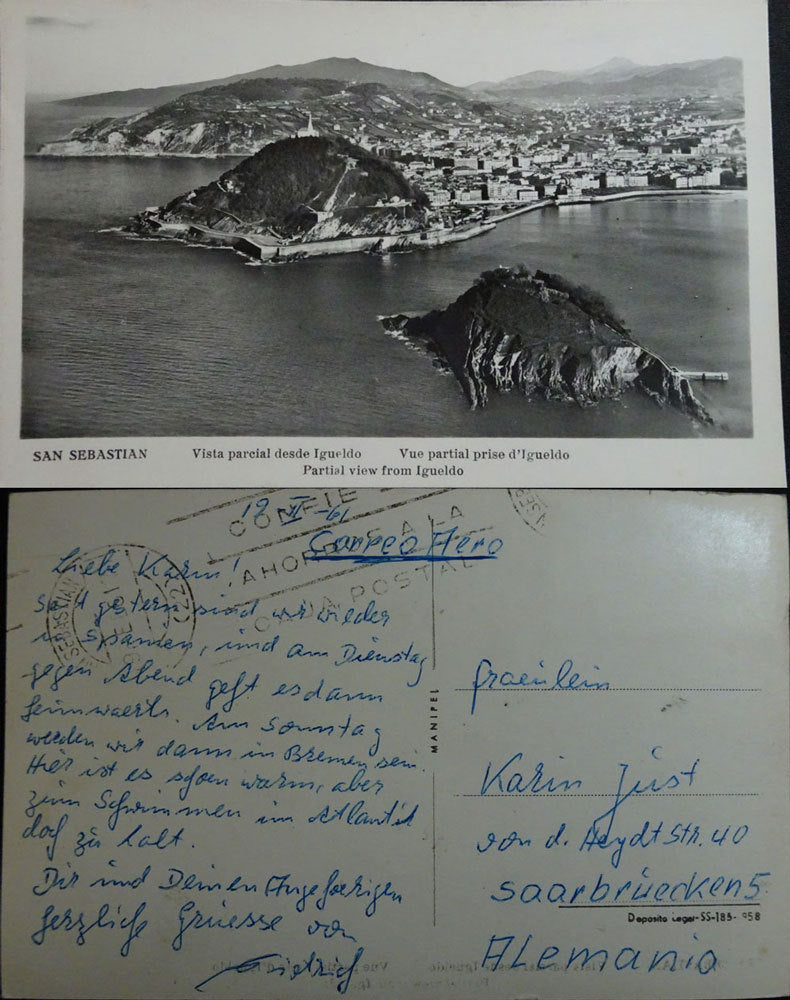 SAN SEBASTIAN Vista parcial desde Igueldo Vue partial prise d'Igueldo
Partial view from Igueldo
CONFIE
AHORROS A LA
CAJA POSTAL
SEBASTIAN
19 VI -61
Correo Aero
Liebe Karin!
Seit gestern sind wir wieder
in Spanien, und am Dienstag
gegen Abend geht es dann
heimwaerts. Am Sonntag
werden wir dann in Bremen sein.
Hier ist es schoen warm, aber
zum Schwimmen im Atlantik
doch zu kalt.
Dir und Deinen Angehoerigen
herzliche Gruesse von
Dietrich
MANIPEL
Fraeulein
Karin Just
von d. Heydt Str. 40
Saarbruecken 5
Deposito Legal-SS-185- 958
Alemania